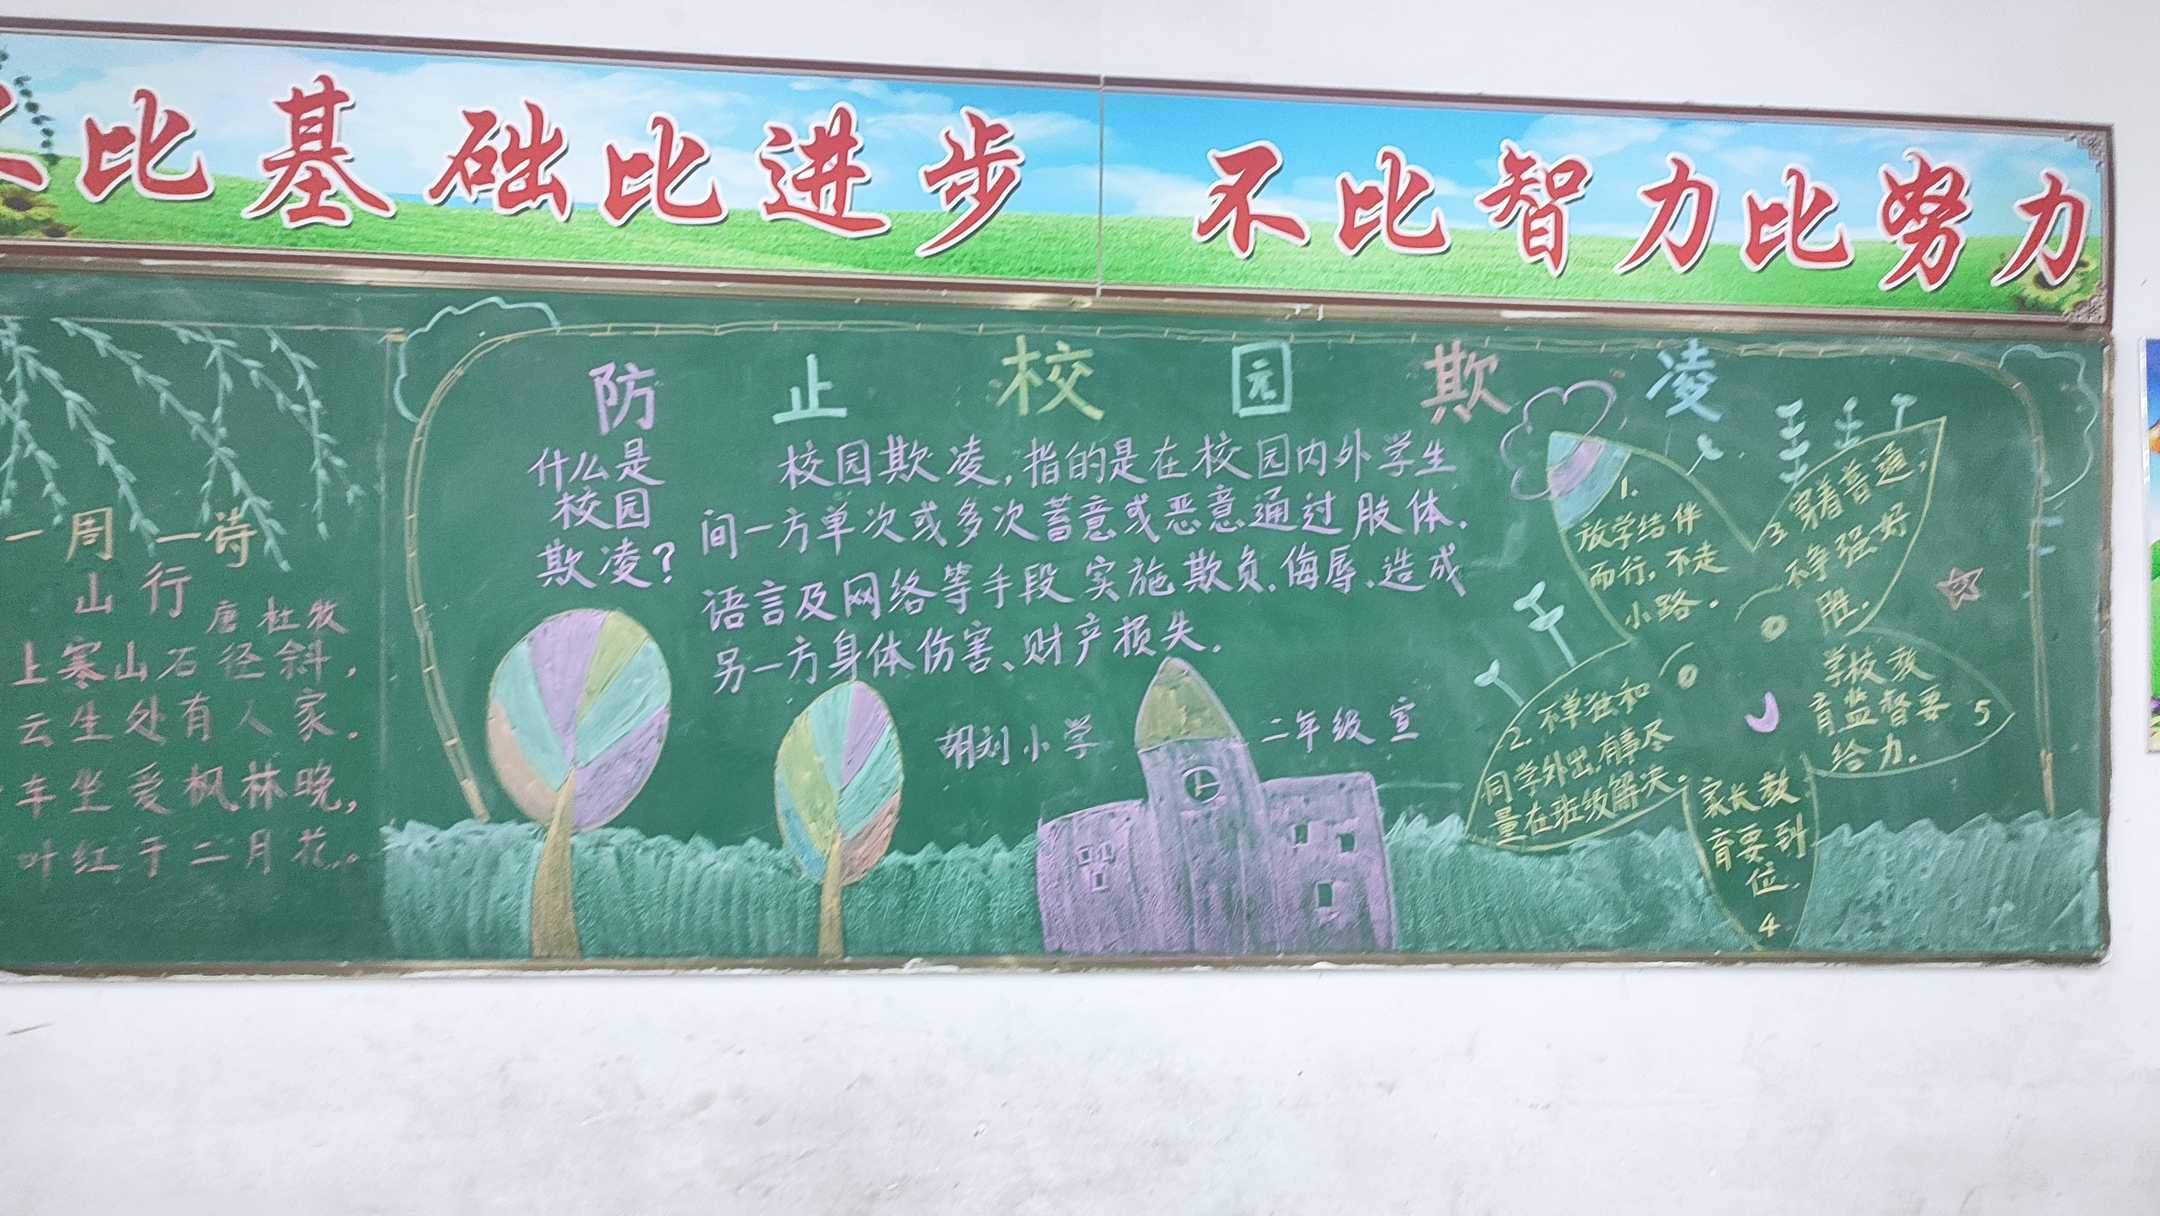 比基础比进步 不比智力比努力
一周一诗
山行
唐 杜牧
上寒山石径斜,
云生处有人家.
车坐爱枫林晚,
叶红于二月花。
防止校园欺凌
什么是
校园
欺凌?
校园欺凌,指的是在校园内外学生
间一方单次或多次蓄意或恶意通过肢体.
语言及网络等手段实施欺负.侮辱、造成
另一方身体伤害、财产损失.
胡刘小学 二年级 宣
1.
放学结伴
而行,不走
小路.
2.不单独和
同学外出,有事尽
量在班级解决.
3.穿着普通,
不争强好
胜.
家长教
育要到
位.
4
学校教
育监督要
给力.
5